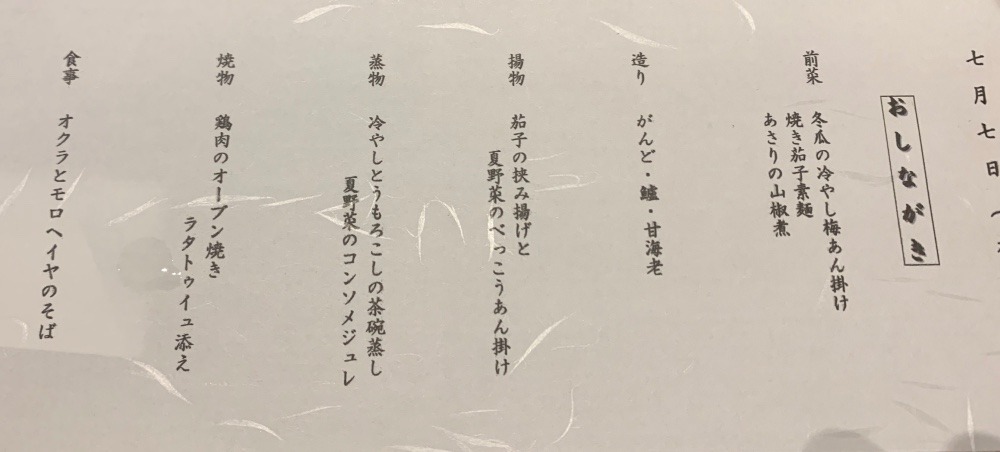 七月七日
おしながき
前菜
冬瓜の冷やし梅あん掛け
焼き茄子素麺
あさりの山椒煮
造り
がんど・鱸・甘海老
揚物
茄子の挟み揚げと
夏野菜のべっこうあん掛け
蒸物
冷やしとうもろこしの茶碗蒸し
夏野菜のコンソメジュレ
焼物
鶏肉のオーブン焼き
ラタトゥイユ添え
食事
オクラとモロヘイヤのそば